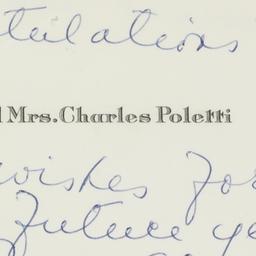 tulations
d Mrs. Charles Poletti
wishes for
future ye